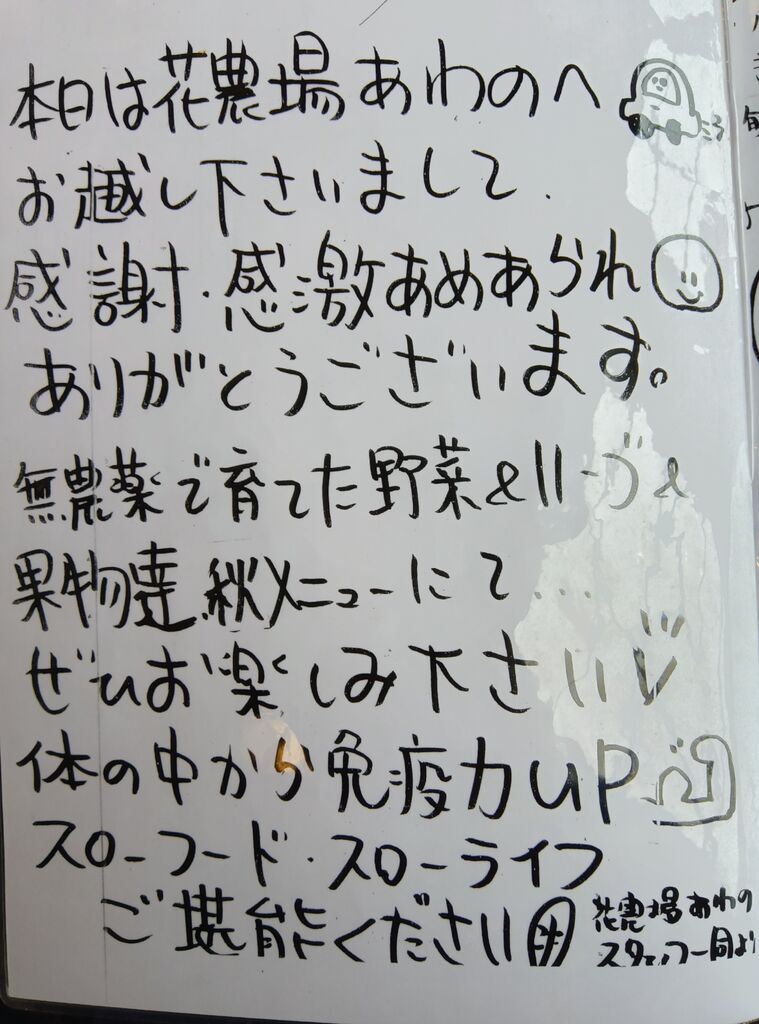 本日は花農場あわのへ
お越し下さいまして.
感謝・感激あめあられ
ありがとうございます。
無農薬で育てた野菜&ハーブ&
果物達、秋メニューにて...
ぜひお楽しみ下さい
体の中から免疫力UP
スローフード・スローライフ
ご堪能ください
花農場あわの
スタッフ一同より